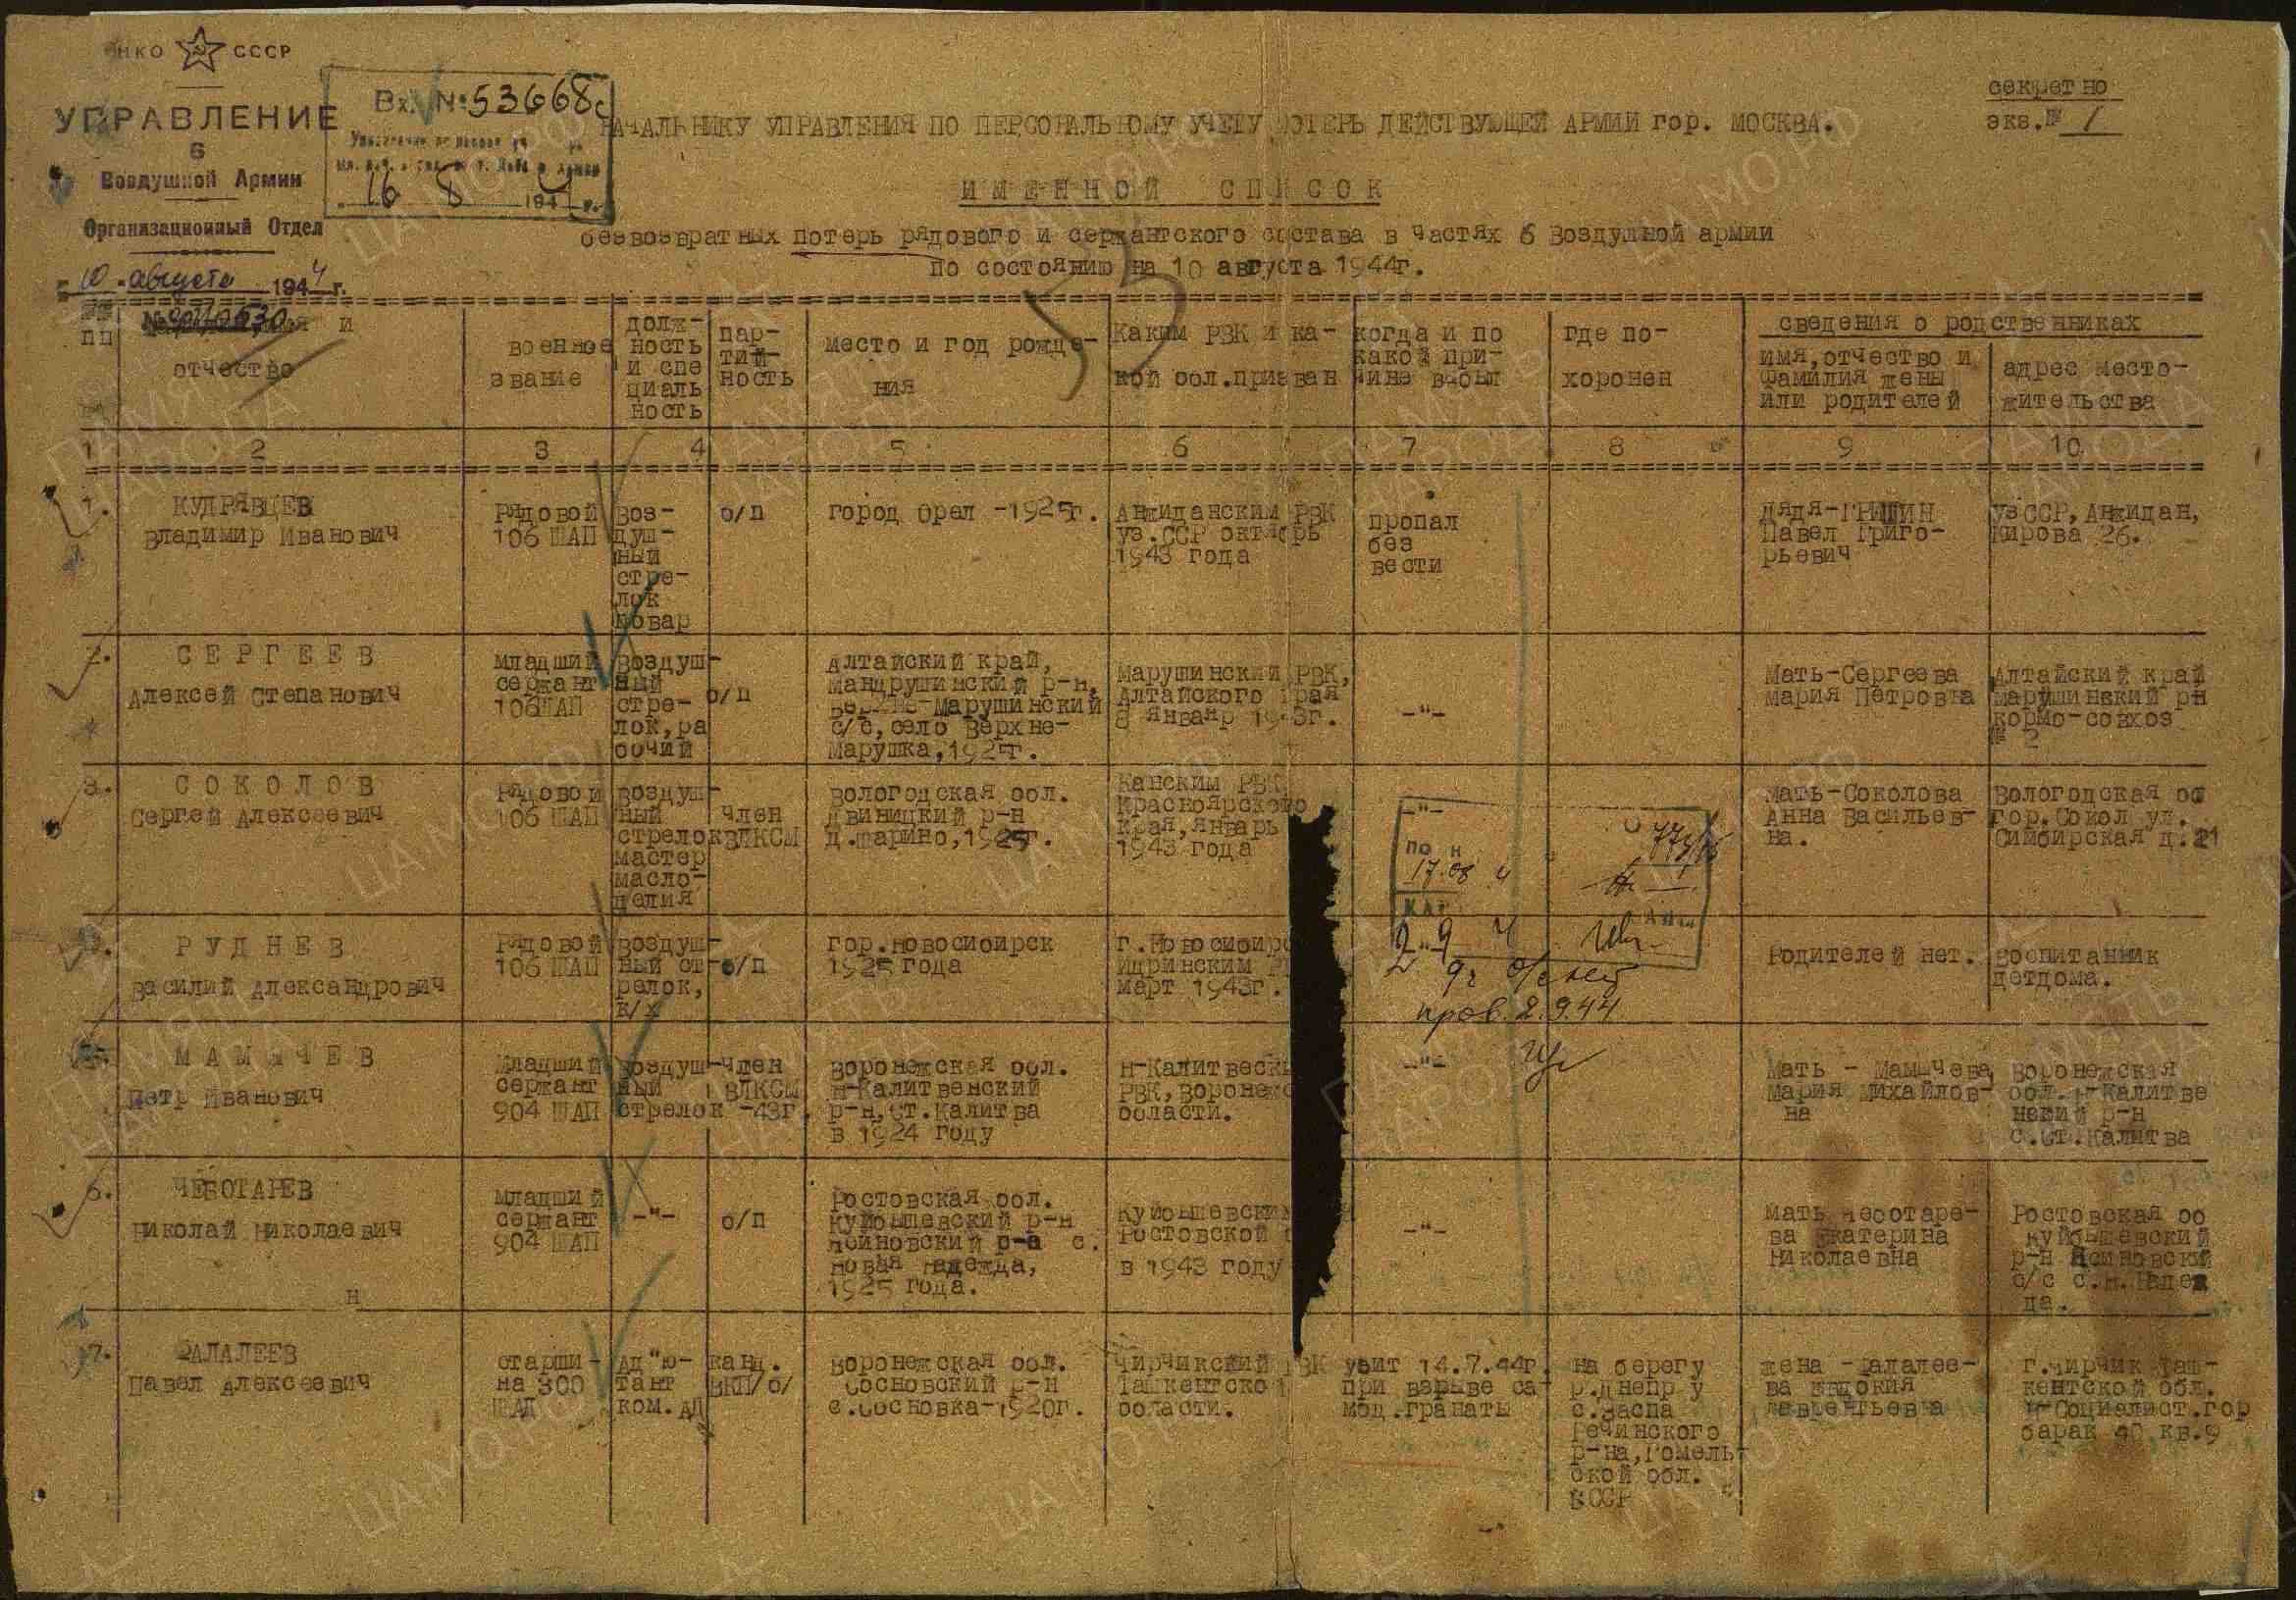 НКО СССР
УПРАВЛЕНИЕ
6
Воздушной Армии
Организационный Отдел
10 августа 1944 г.
Вх. № 53668с
16 8 1944 г.
секретно
экз.№ 1
НАЧАЛЬНИКУ УПРАВЛЕНИЯ ПО ПЕРСОНАЛЬНОМУ УЧЕТУ ПОТЕРЬ ДЕЙСТВУЮЩЕЙ АРМИИ гор. МОСКВА.
ИМЕННОЙ СПИСОК
безвозвратных потерь рядового и сержантского состава в частях 6 Воздушной армии
по состоянию на 10 августа 1944г.
пп
и
отчество
военное
звание
долж-
ность
и спе
циаль
ность
пар-
тий-
ность
место и год рожде-
ния
Каким РВК и ка-
кой обл.призван
когда и по
какой при-
чине выбыл
где по-
хоронен
сведения о родственниках
имя,отчество и
фамилия жены
или родителей
адрес место-
жительства
1 2 3 4 5 6 7 8 9 10
1.
КУДРЯВЦЕВ
Владимир Иванович
Рядовой
106 ШАП
Воз-
душ-
ный
стре-
лок
повар
б/п
город Орел -1925г.
Анжиданским РВК
Уз.ССР октябрь
1943 года
пропал
без
вести
Дядя-ГРИШИН
Павел Григо-
рьевич
УзССР,Анжидан,
Кирова 26.
2.
СЕРГЕЕВ
Алексей Степанович
Младший
сержант
106ШАП
Воздуш-
ный
стре-
лок,ра
бочий
б/п
Алтайский край,
Мандрушинский р-н,
Верхне-Марушинский
с/с,село Верхне-
Марушка,1925г.
Марушинский РВК,
Алтайского края
8 январ 1943г.
-"-
Мать-Сергеева
Мария Петровна
Алтайский край
Марушинский рн
кормо-совхоз
№ 2
3.
СОКОЛОВ
Сергей Алексеевич
Рядовой
106 ШАП
Воздуш-
ный
стрелок
мастер
масло-
делия
член
ВЛКСМ
Вологодская обл.
Двиницкий р-н
д.Шарино,1925г.
Канским РВК
Красноярского
края,январь
1943 года
-"-
Мать-Соколова
Анна Васильев-
на.
Вологодская об
гор.Сокол ул.
Симбирская д.21
17.08
4.
РУДНЕВ
Василий Александрович
Рядовой
106 ШАП
Воздуш-
ный ст-
релок,
к/х
б/п
гор.Новосибирск
1925 года
г.Новосибирс
Идринским Р
март 1943г.
Родителей нет.
воспитанник
детдома.
пров. 2.9.44
5.
МАМЫЧЕВ
Петр Иванович
Младший
сержант
904 ШАП
Воздуш-
ный
стрелок
член
ВЛКСМ
-43г.
Воронежская обл.
Н-Калитвенский
р-н,Ст.Калитва
в 1924 году
Н-Калитвеск
РВК,Воронежс
области.
-"-
Мать - Мамычева
Мария Михайлов-
на
Воронежская
обл.Н-Калитве
нский р-н
с.Ст.Калитва
6.
ЧЕБОТАРЕВ
Николай Николаевич
Младший
сержант
904 ШАП
-"-
б/п
Ростовская обл.
Куйбышевский р-н
Ясиновский р-а с.
Новая Надежда,
1925 года.
Куйбышевским
Ростовской
в 1943 году
-"-
Мать Чеботаре-
ва Екатерина
Николаевна
Ростовская об
Куйбышевский
р-н Ясиновский
с/с с.Н.Надеж
да.
н
7.
ФАЛАЛЕЕВ
Павел Алексеевич
Старши-
на 300
ШАД
Ад"ю-
тант
ком.АД
канд.
ВКП/б/
Воронежская обл.
Сосновский р-н
с.Сосновка-1920г.
Чирчикский РВК
Ташкентской
области.
убит 14.7.44г.
при взрыве са-
мод.гранаты
на берегу
р.Днепр у
с.Заспа
Речинского
р-на,Гомель-
ской обл.
БССР
жена -Фалалее-
ва Евдокия
Лаврентьевна
г.Чирчик Таш-
кентской обл.
Социалист.гор
барак 40 кв.9